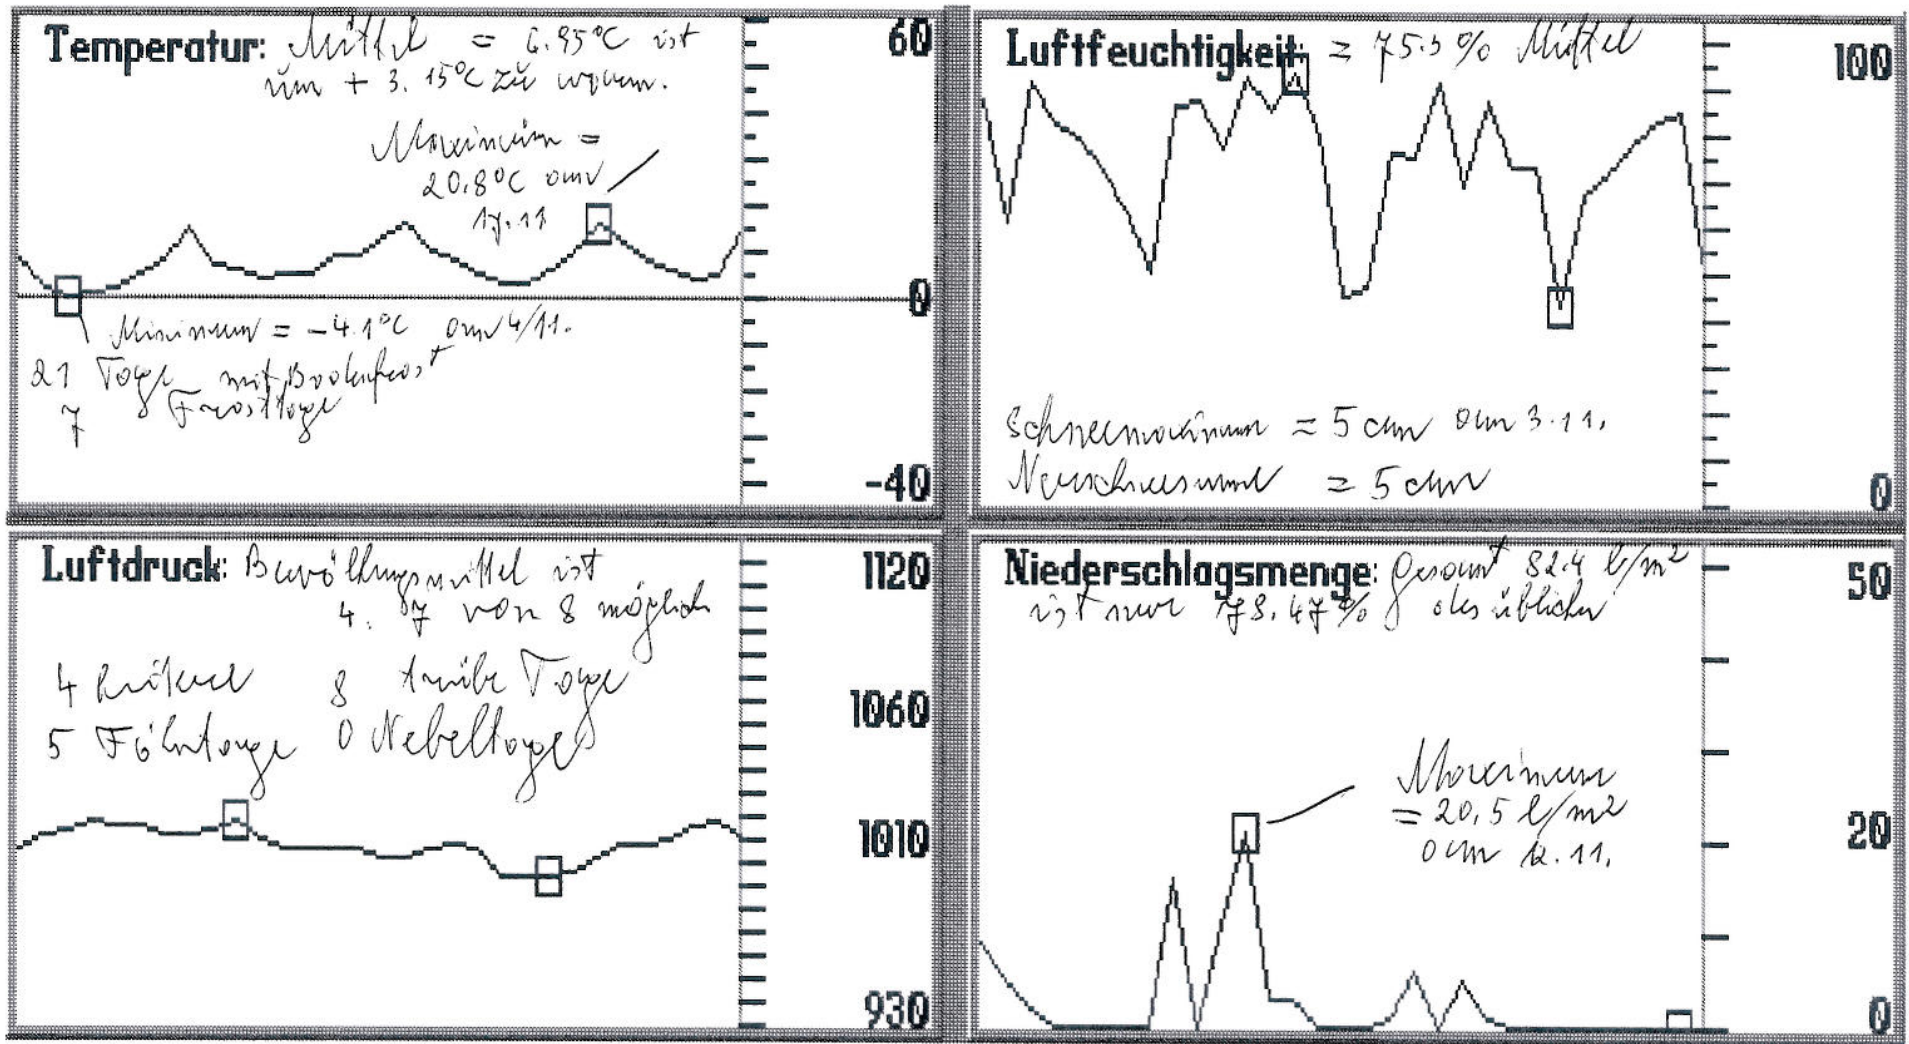 Temperatur: Mittel = 6.95°C ist
um + 3.15°C zu warm.
60
Maximum =
20.8°C am
17.11
0
Minimum = -4.1°C am 4/11.
21 Tage mit Bodenfrost
7 Frosttage
-40
Luftfeuchtigkeit: = 75.5% Mittel
100
Schneemaximum = 5 cm am 3.11.
Neuschneesumme = 5 cm
0
Luftdruck: Bewölkungsmittel ist
4.07 von 8 möglich
1120
4 heitere 8 trübe Tage
5 Föhntage 0 Nebeltage
1060
1010
930
Niederschlagsmenge: Gesamt 82.4 l/m²
ist nur 78.47% des üblichen
50
Maximum
= 20,5 l/m²
am 12.11.
20
0